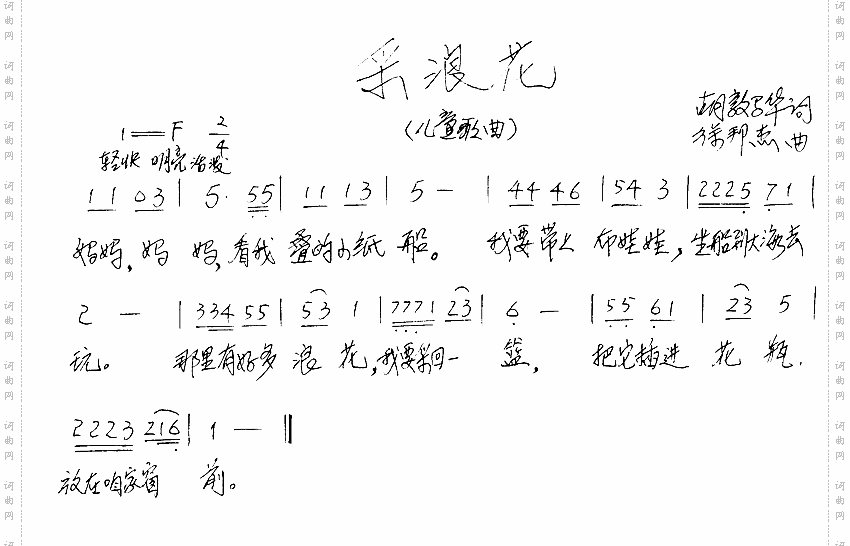 采浪花
(儿童歌曲)
胡敦华词
徐邦杰曲
1=F 2/4
轻快 明亮 活泼
1 1 0 3 | 5. 5 5 | 1 1 1 3 | 5 - | 4 4 4 6 | 5 4 3 | 2 2 2 5 7 1 |
妈妈,妈妈,看我叠的小纸船。我要带上布娃娃,坐船到大海去
2 - | 3 3 4 5 5 | 5 3 1 | 7 7 7 1 2 3 | 6 - | 5 5 6 1 | 2 3 5 |
玩。那里有好多浪花,我要采回一篮,把它插进花瓶.
2 2 2 3 2 1 6 | 1 - ‖
放在咱家窗前。
词曲网